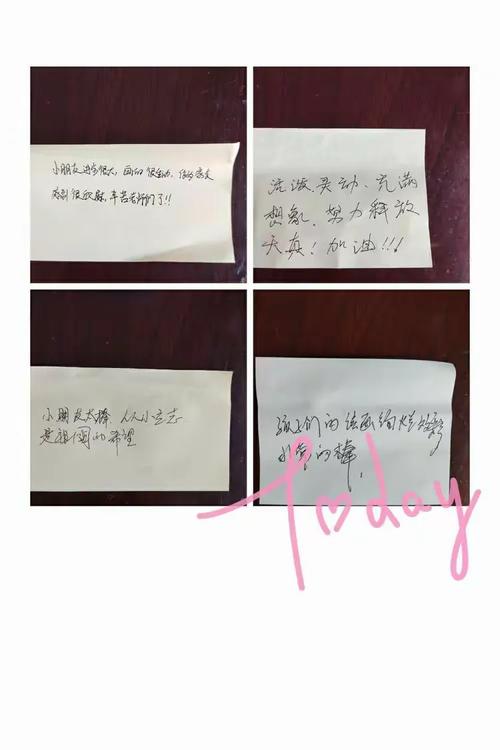 小朋友进步很大，画的很生动，作为家长
感到很欣慰，辛苦老师们了!!
活泼灵动、充满
想象，努力释放
天真！加油!!!
小朋友太棒，人小立志
是祖国的希望
孩子们的绘画绚烂多彩
的棒！
Today